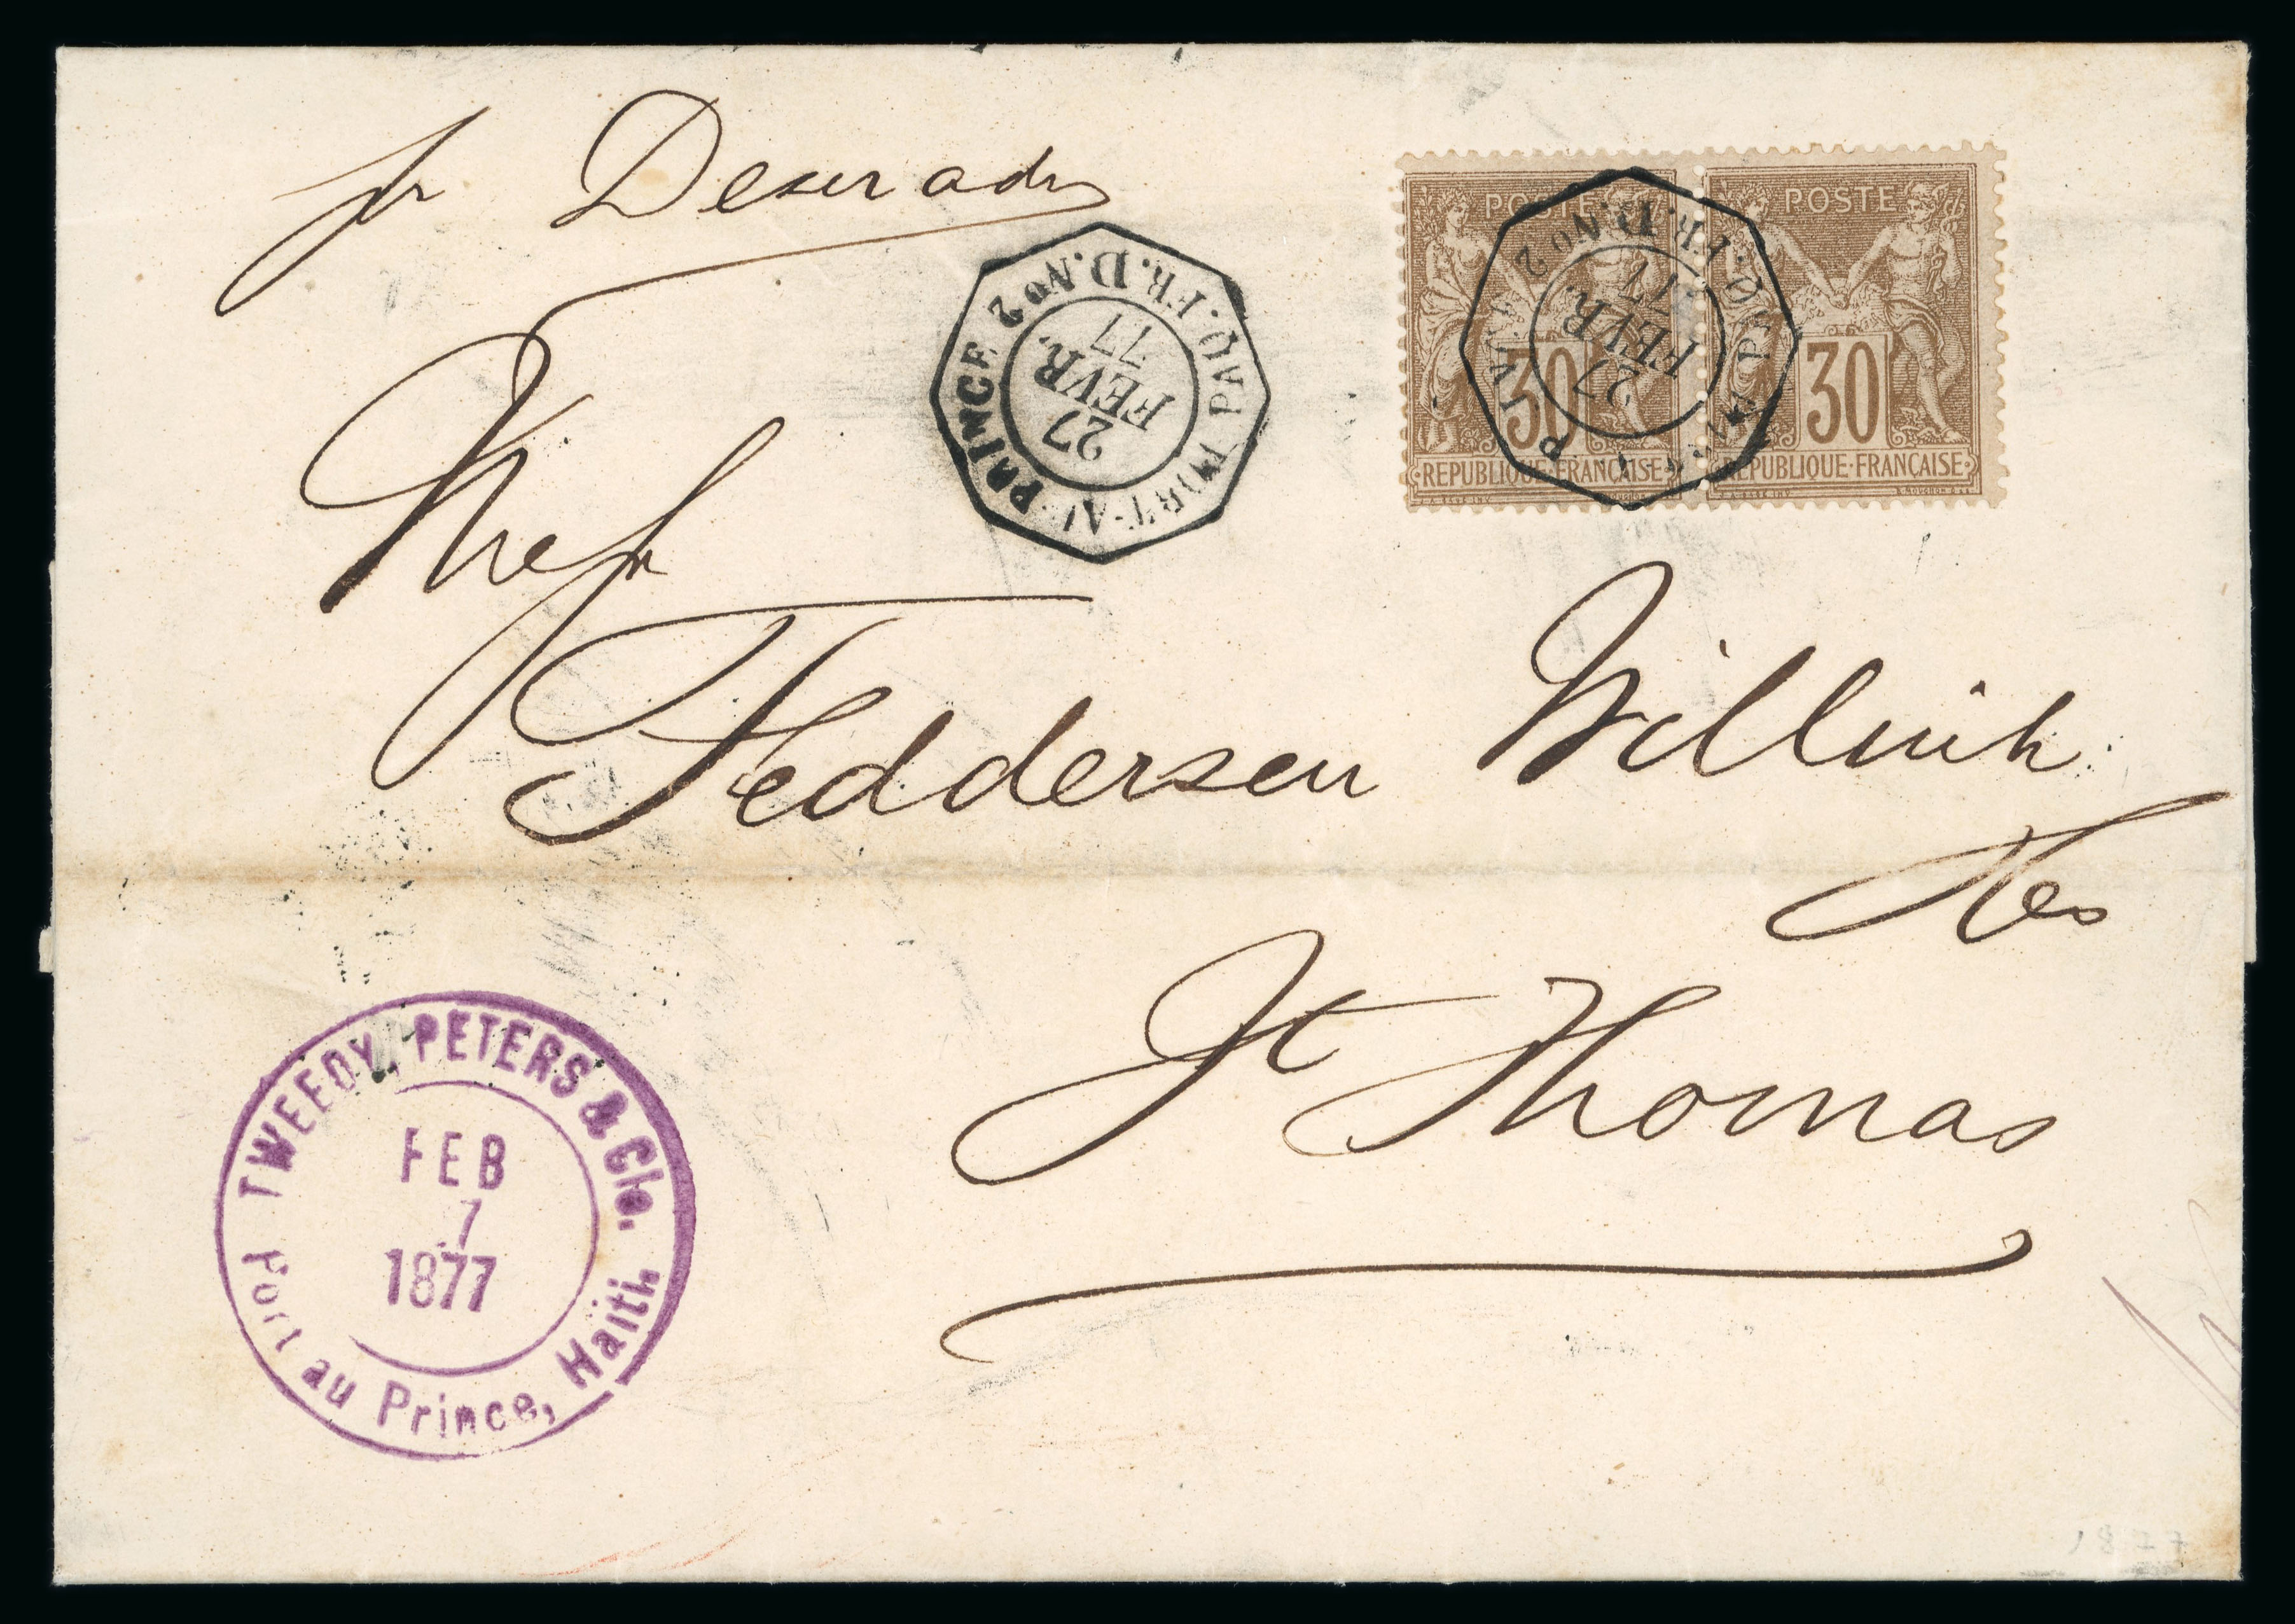 pr Desirade
PORT-AU-PRINCE PAQ. FR. D. No 2
27
FEVR.
77
PAQ. FR. D. No 2
27
FEVR.
77
POSTE
30
REPUBLIQUE·FRANÇAISE
POSTE
30
REPUBLIQUE·FRANÇAISE
Feddersen Willink
St Thomas
TWEEDY, PETERS & Cie.
FEB
7
1877
Port au Prince, Haiti.
1877